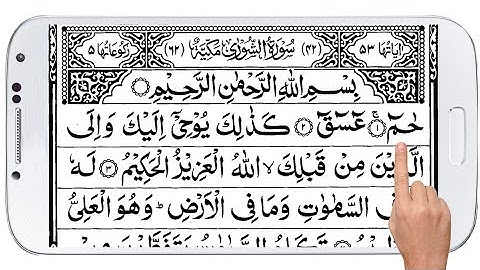 اٰيَاتُهَا ٥٣ (٤٢) سُوْرَةُ الشُّوْرٰى مَكِّيَّةٌ (٦٢) رُكُوْعَاتُهَا ٥
بِسْمِ اللّٰهِ الرَّحْمٰنِ الرَّحِيْمِ
حٰمٓ ۚ ١ عٓسٓقٓ ٢ كَذٰلِكَ يُوْحِيْٓ اِلَيْكَ وَاِلَى
الَّذِيْنَ مِنْ قَبْلِكَ ۙ اللّٰهُ الْعَزِيْزُ الْحَكِيْمُ ٣ لَهٗ
فِى السَّمٰوٰتِ وَمَا فِى الْاَرْضِ ؕ وَهُوَ الْعَلِىُّ